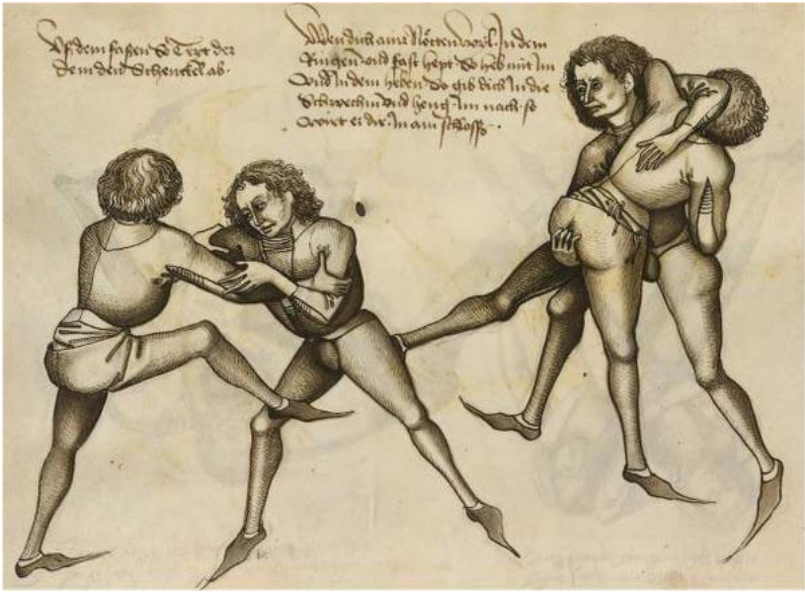 Uß dem faßen So Trit der
dem den Schenckel ab.
Wen dich ainr Nötten wyl In dem
Ringen vnd fast hept So heb mit Im
Vnd In dem heben So gib dich In die
Schwechin vnd heng Im nach so
wirt er dir In ain schloss